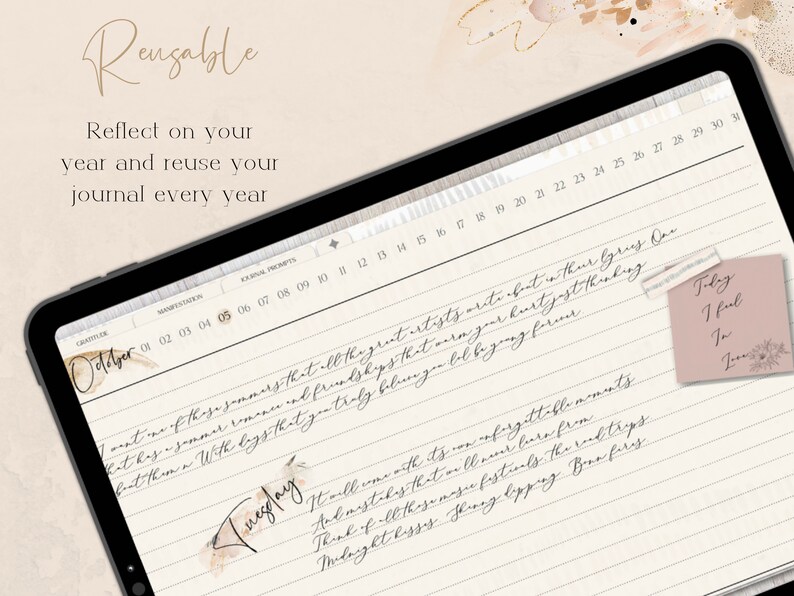 Reusable
Reflect on your
year and reuse your
journal every year
GRATITUDE
MANIFESTATION
JOURNAL PROMPTS
October 01 02 03 04 05 06 07 08 09 10 11 12 13 14 15 16 17 18 19 20 21 22 23 24 25 26 27 28 29 30 31
I want one of those summers that all the great artists write about in their lyrics. One
that has a summer romance and friendships that warm your heart just thinking
about them. With days that you truly believe you'll be young forever.
Today
I feel
In
Love
Tuesday
It will come with its own unforgettable moments
And mistakes that we'll never learn from.
Think of all those music festivals, the road trips
Midnight kisses. Skinny dipping. Bonn fires.